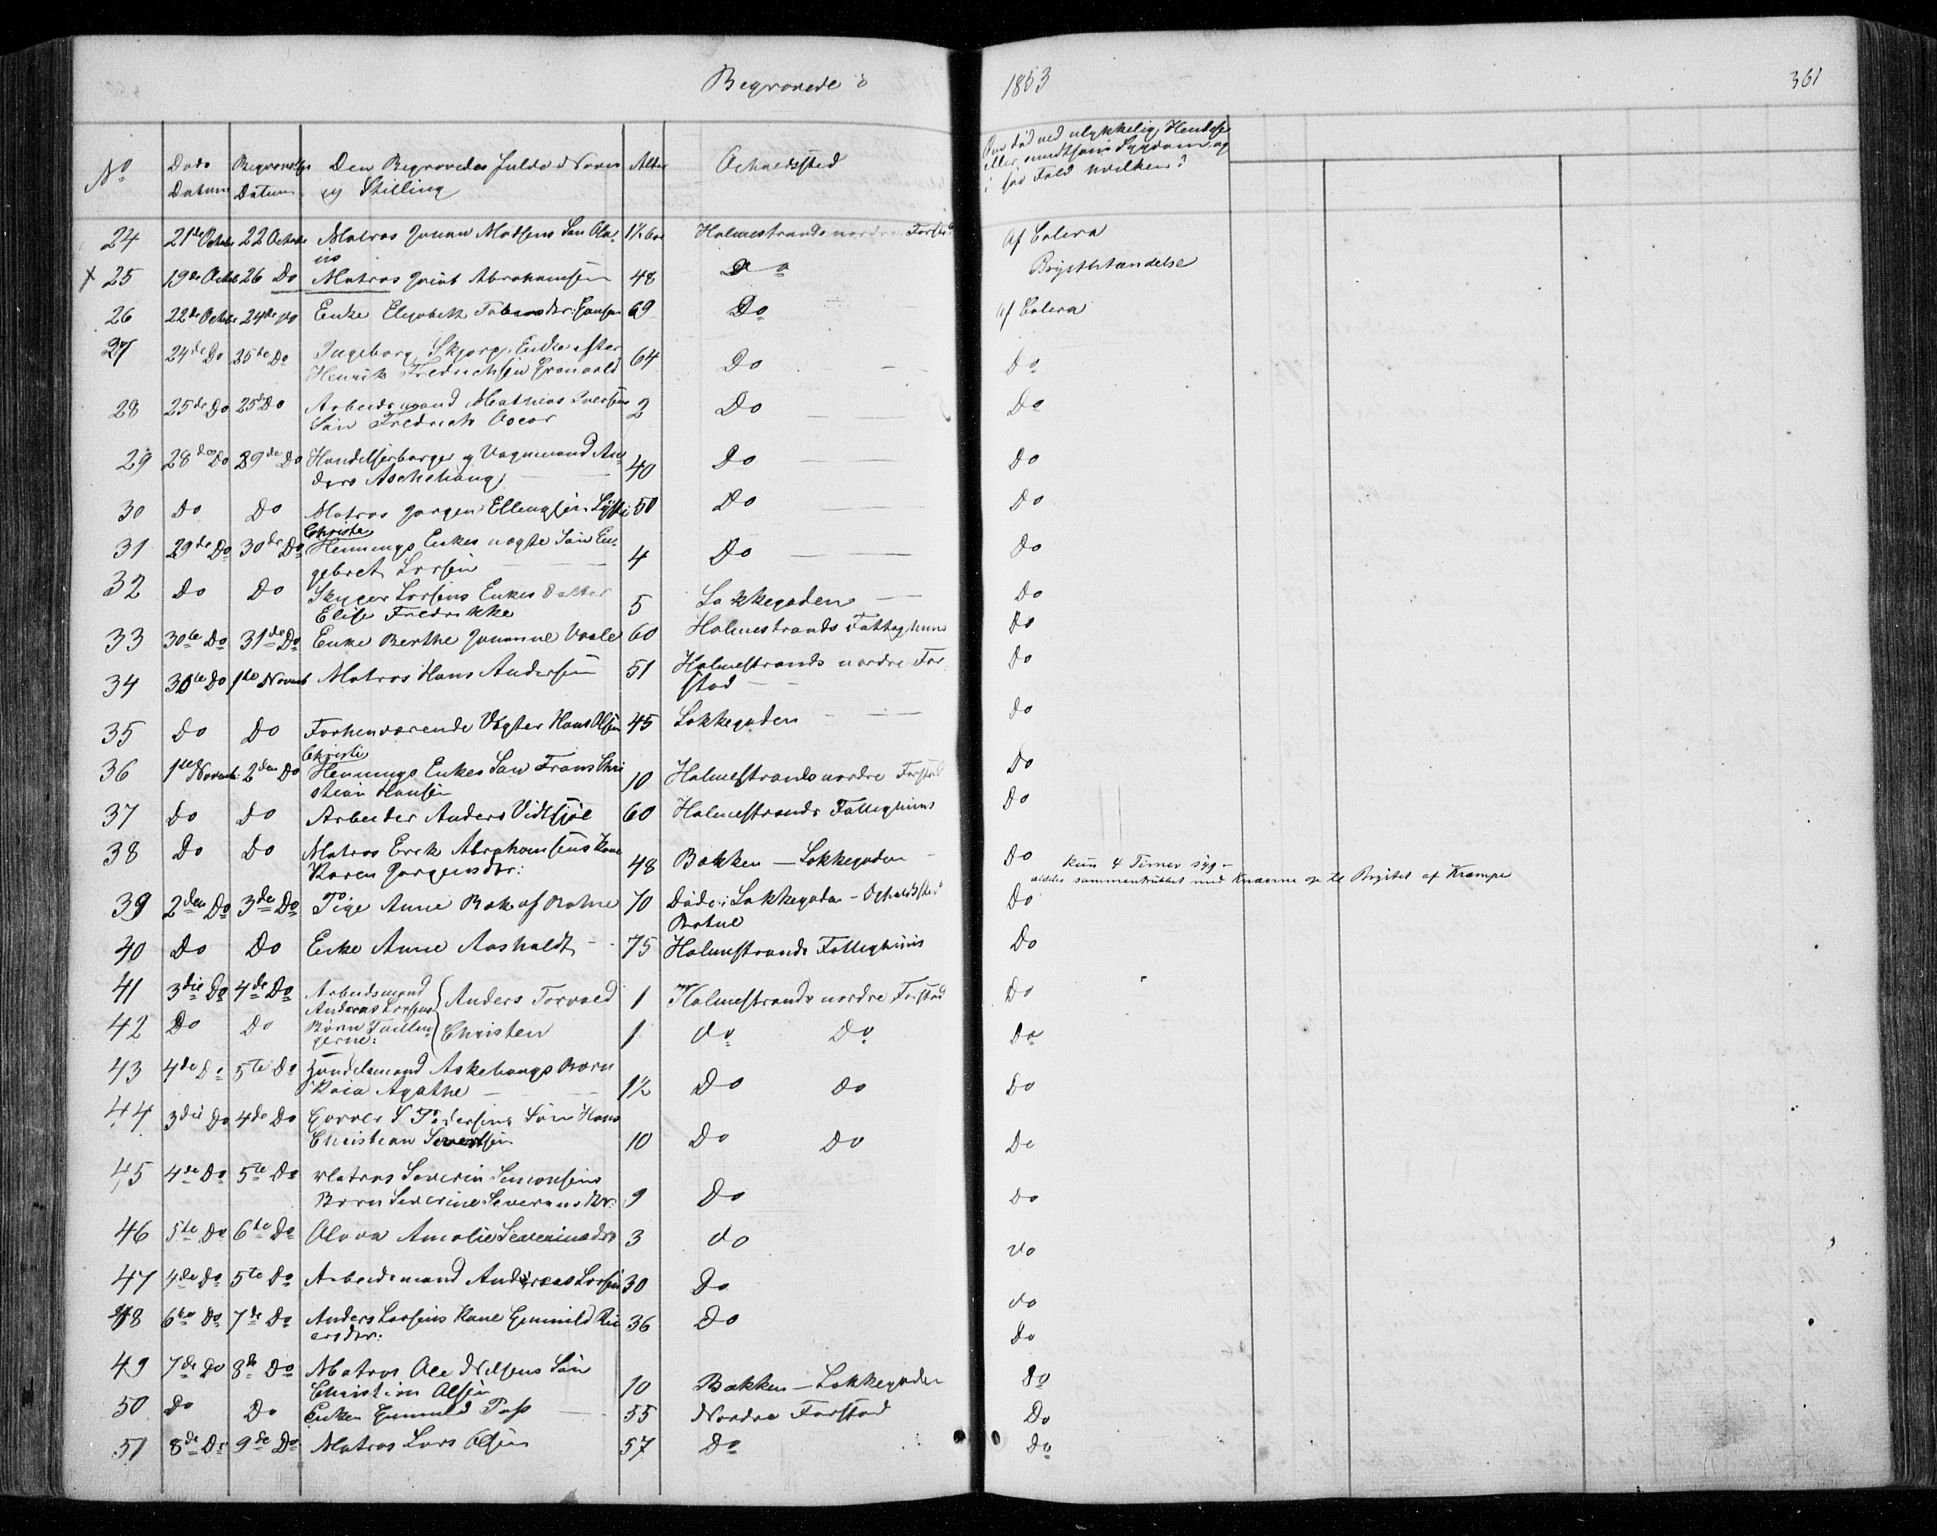 Begravede i 1853 361
No Døds Datum Begravelses Datum Den Begravedes fulde Navn og Stilling Alder Opholdssted Om død ved ulykkelig Hendelse eller smidtsom Sygdom og i saa Fald hvilken?
24 21de Octobr 22 Octobr Matros Johan Madsens Søn 1½ Holmestrands nordre Forstad Af Colera
x 25 19de Octob 26 Do Matros Jacob Abrahamsen 48 Do Brystbetændelse
26 22de Octobr 24de Do Enke Elisabeth Hansen 69 Do Af Colera
27 24de Do 25de Do Ingeborg Skjerp, Enke efter
Henrik Fredrichsen Grønvold 64 Do Do
28 25de Do 25de Do Arbeidsmand Mathias Iversens
Søn Fredrich Oscar 2 Do Do
29 28de Do 29de Do Handelsborger og Vognmand An-
ders Aschehoug 40 Do Do
30 Do Do Matros Jørgen Ellingsen 50 Do Do
31 29de Do 30de Do Christi Hennings Enkes uægte Søn En-
gebret Larsen 4 Do Do
32 Do Do Larsens Enkes Datter
Elise Fredrikke 5 Løkkegaden Do
33 30te Do 31de Do Enke Berthe Johanne Vaale 60 Holmestrands Fattighuus Do
34 30te Do 1te Novemb Matros Hans Andersen 51 Holmestrands nordre For-
stad Do
35 Do Do Forhenværende Vægter Hans Olsen 45 Løkkegaden Do
36 1te Novemb: 2den Do Christi Hennings Enkes Søn Frans Chri
stian Hansen 10 Holmestrands nordre Forstad Do
37 Do Do Arbeider Anders Vidtsjøe 60 Holmestrands Fattighuus Do
38 Do Do Matros Erik Abrahamsens Kone
Karen Jørgensdtr: 48 Bakken – Løkkegaden Do
kun 4 Timer syg –
aldeles sammentrukket med Knæerne op til Brystet af Krampe
39 2den Do 3de Do Pige Anne Bak af Botne 70 Døde i Løkkegaden – Opholdssted
Botne Do
40 Do Do Enke Anne Aasholdt 75 Holmestrands Fattighuus Do
41 3die Do 4de Do Arbeidsmand
Andreas Larsens Anders Torvald 1 Holmestrands nordre Forstad Do
42 Do Do Børn Tvillin-
gerne: Christen 1 do Do Do
43 4de Do 5te Do Handelsmand Askehougs Barn
Agathe 1½ Do Do Do
44 3die Do 4de Do Garver S Pedersens Søn Hans
Christian Severtsen 10 Do Do Do
45 4de Do 5te Do Matros Severin Simonsens
Børn Severine Severinsdtr: 9 Do Do
46 5te Do 6te Do Amalie Severinsdtr 3 do Do
47 4de Do 5te Do Arbeidsmand Andreas Larsen 30 Do Do
48 6te Do 7de Do Anders Larsens Kone Gunnild
ersdtr: 36 Do Do
49 7de Do 8de Do Matros Ole Nilsens Søn
Christian Olsen 10 Bakken – Løkkegaden Do
50 Do Do Enken Gunnild 55 Nordre Forstad Do
51 8de Do 9de Do Matros Lars Olsen 57 Do Do